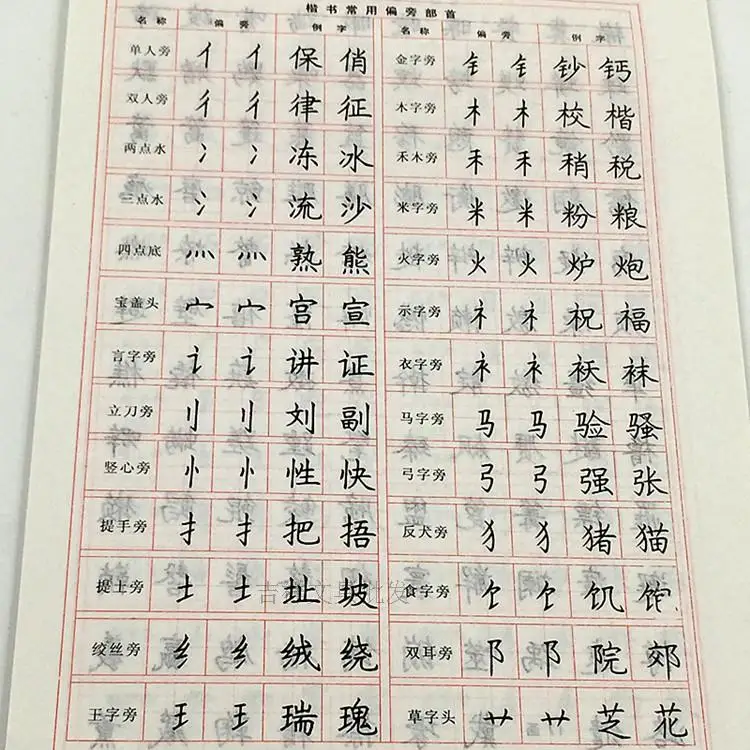 楷书常用偏旁部首
名称 偏旁 例字 名称 偏旁 例字
单人旁 亻 亻 保 俏 金字旁 钅 钅 钞 钙
双人旁 彳 彳 律 征 木字旁 木 木 校 楷
两点水 冫 冫 冻 冰 禾木旁 禾 禾 稍 税
三点水 氵 氵 流 沙 米字旁 米 米 粉 粮
四点底 灬 灬 熟 熊 火字旁 火 火 炉 炮
宝盖头 宀 宀 宫 宣 示字旁 礻 礻 祝 福
言字旁 讠 讠 讲 证 衣字旁 衤 衤 袄 袜
立刀旁 刂 刂 刘 副 马字旁 马 马 验 骚
竖心旁 忄 忄 性 快 弓字旁 弓 弓 强 张
提手旁 扌 扌 把 捂 反犬旁 犭 犭 猪 猫
提土旁 土 土 址 坡 食字旁 饣 饣 饥
绞丝旁 纟 纟 绒 绕 双耳旁 阝 阝 院 郊
王字旁 王 王 瑞 瑰 草字头 艹 艹 芝 花